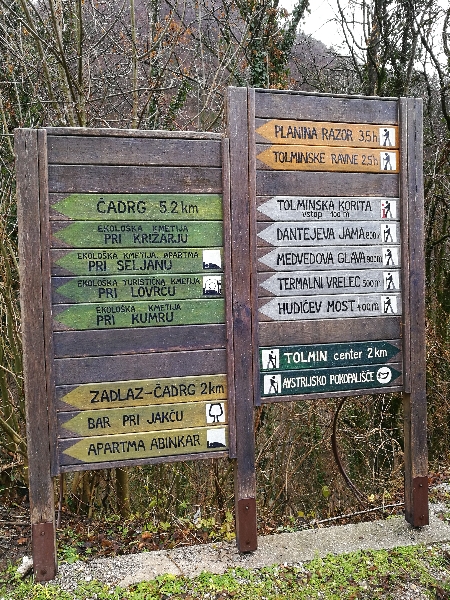 ČADRG 5.2 km
EKOLOŠKA KMETIJA
PRI KRIŽARJU
EKOLOŠKA KMETIJA, APARTMA
PRI ŠELJANU
EKOLOŠKA TURISTIČNA KMETIJA
PRI LOVRČU
EKOLOŠKA KMETIJA
PRI KUMRU
ZADLAZ-ČADRG 2 km
BAR PRI JAKČU
APARTMA ABINKAR
PLANINA RAZOR 3,5h
TOLMINSKE RAVNE 2,5h
TOLMINSKA KORITA
vstop 100 m
DANTEJEVA JAMA 800 m
MEDVEDOVA GLAVA 900m
TERMALNI VRELEC 500m
HUDIČEV MOST 400m
TOLMIN center 2 km
AVSTRIJSKO POKOPALIŠČE